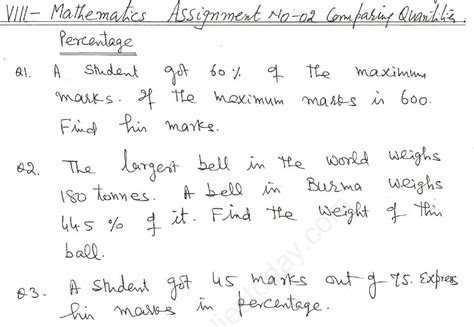 VIII- Mathematics Assignment No-02 Comparing Quantities
Percentage
Q1. A student got 60% of the maximum
marks. If the maximum marks is 600.
Find his marks.
Q2. The largest bell in the world weighs
180 tonnes. A bell in Burma weighs
44.5 % of it. Find the weight of this
ball.
Q3. A student got 45 marks out of 75. Express
his marks in percentage.